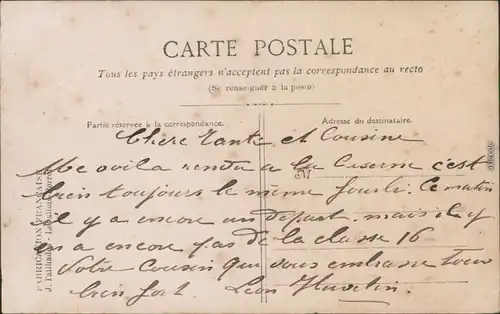 CARTE POSTALE
Tous les pays étrangers n'acceptent pas la correspondance au recto
(Se renseigner à la poste)
Partie réservée à la correspondance.
Adresse du destinataire.
Chere Tante et Cousine
Me voila rendu a la Caserne c'est
bien toujours le meme fourbi. Ce matin
il y a encore un départ. mais il y
en a encore pas de la classe 16
Votre Cousin que vous embrasse tous
bien fort. Leon
M
FABRICATION FRANÇAISE